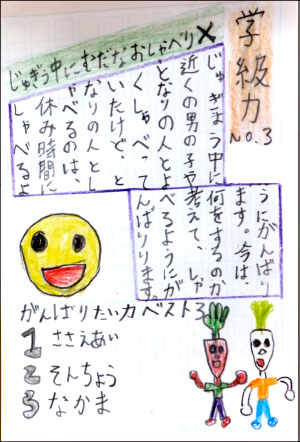 学級力
NO.3
じゅぎう中にむだなおしゃべり✕
じゅぎょう中に
近くの男の子や
となりの人とよ
くしゃべって
いたけど、と
なりの人とし
ゃべるのは、
休み時間に
しゃべるよ
うにがんばり
ます。今は、
何をするのか
考えて、しゃ
べるようにが
んばります。
がんばりたい力ベスト3
1 ささえあい
2 そんちょう
3 なかま